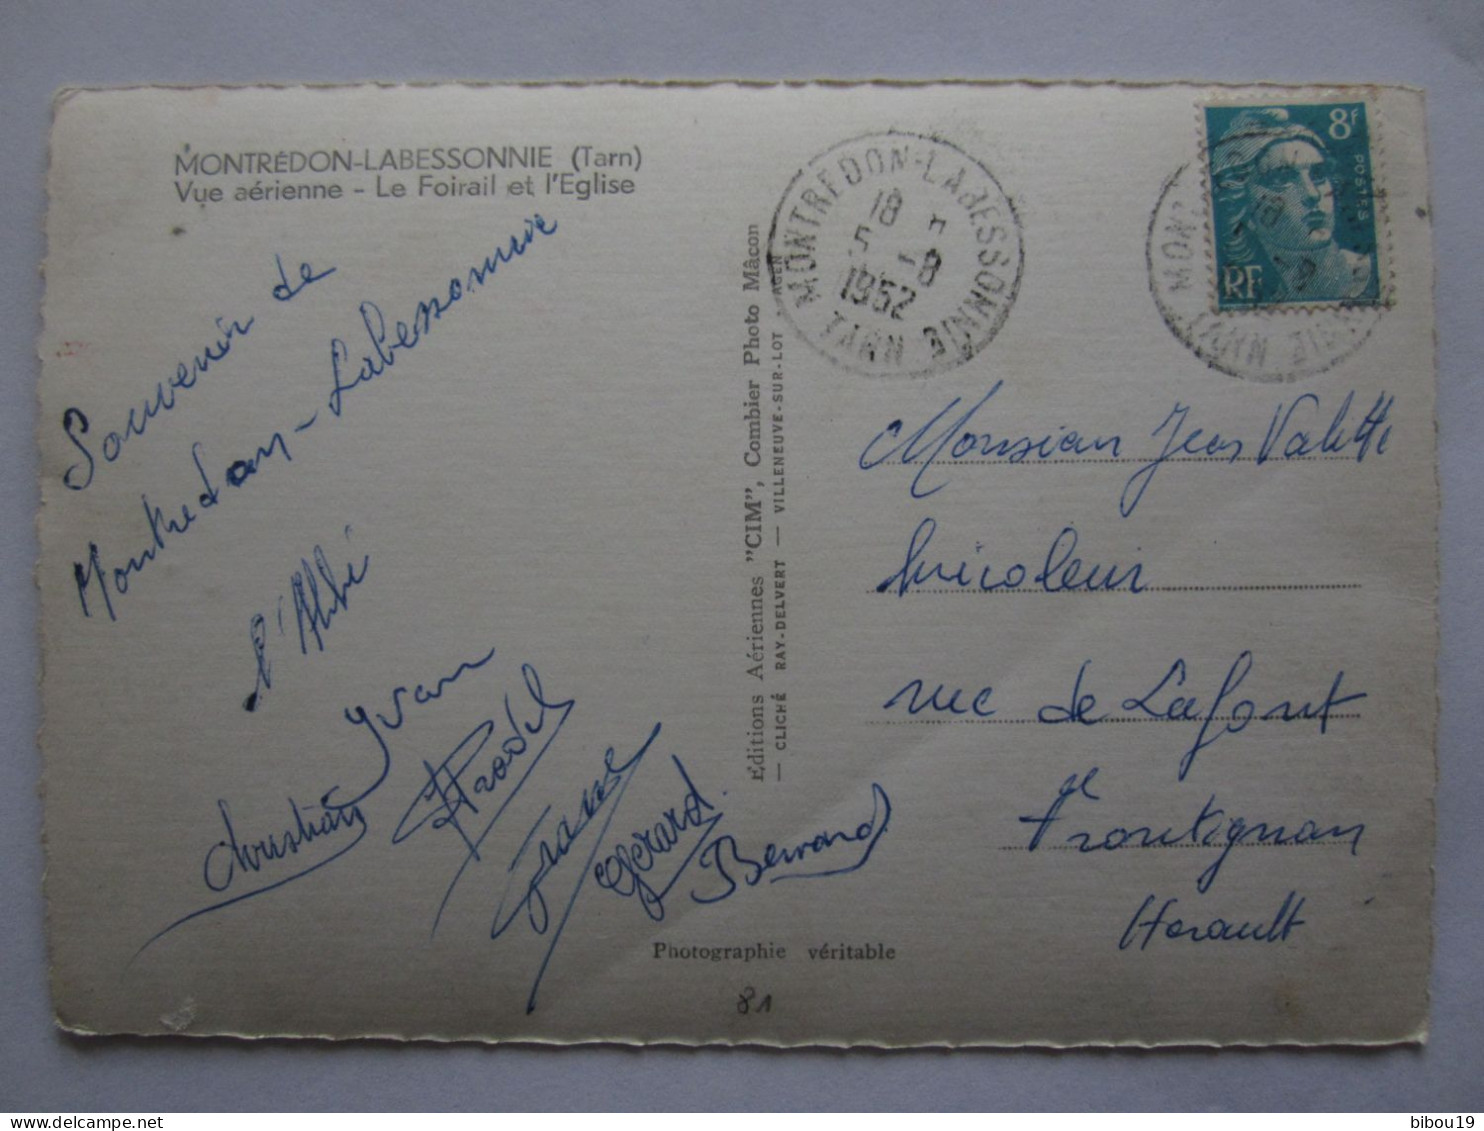 MONTRÉDON-LABESSONNIE (Tarn)
Vue aérienne - Le Foirail et l'Eglise
Souvenir de
Montredon-Labessonnie
l'Abbé
Yvan
Christian
Gérard
Bernard
Éditions Aériennes "CIM", Combier Photo Mâcon
— CLICHÉ RAY-DELVERT — VILLENEUVE-SUR-LOT - AGEN
Photographie véritable
81
MONTREDON-LABESSONNIE
18
5 - 8
1952
TARN
8F
POSTES
RF
Monsieur Jean Valette
rue de Lafont
Frontignan
Herault
bibou19